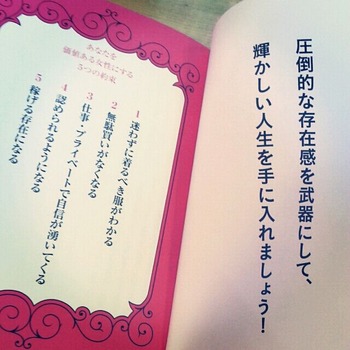 圧倒的な存在感を武器にして、
輝かしい人生を手に入れましょう！
あなたを
価値ある女性にする
5つの約束
1 迷わずに着るべき服がわかる
2 無駄買いがなくなる
3 仕事、プライベートで自信が湧いてくる
4 認められるようになる
5 稼げる存在になる